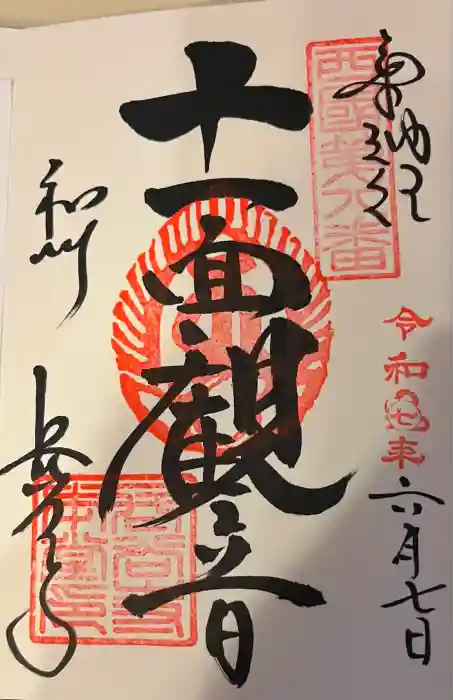 西國第八番
奉納経
令和四年六月七日
十一面観音
和州
長谷寺